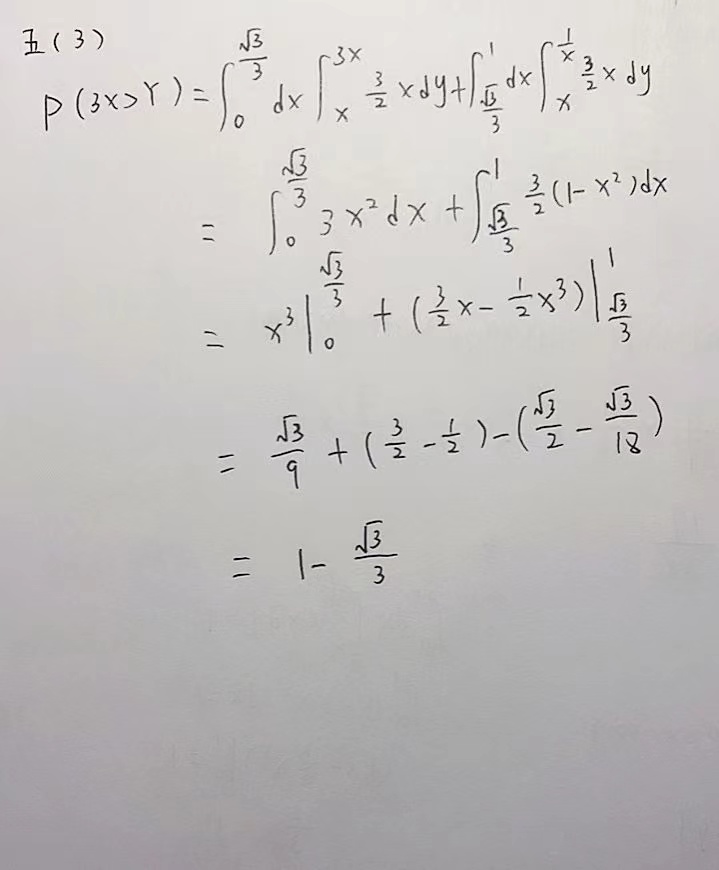 五(3)
P(3X>Y)=∫_0^{\frac{√3}{3}} dx ∫_x^{3x} \frac{3}{2} x dy + ∫_{\frac{√3}{3}}^1 dx ∫_x^{\frac{1}{x}} \frac{3}{2} x dy
= ∫_0^{\frac{√3}{3}} 3x² dx + ∫_{\frac{√3}{3}}^1 \frac{3}{2}(1-x²)dx
= x³|_0^{\frac{√3}{3}} + (\frac{3}{2}x - \frac{1}{2}x³)|_{\frac{√3}{3}}^1
= \frac{√3}{9} + (\frac{3}{2} - \frac{1}{2}) - (\frac{√3}{2} - \frac{√3}{18})
= 1 - \frac{√3}{3}